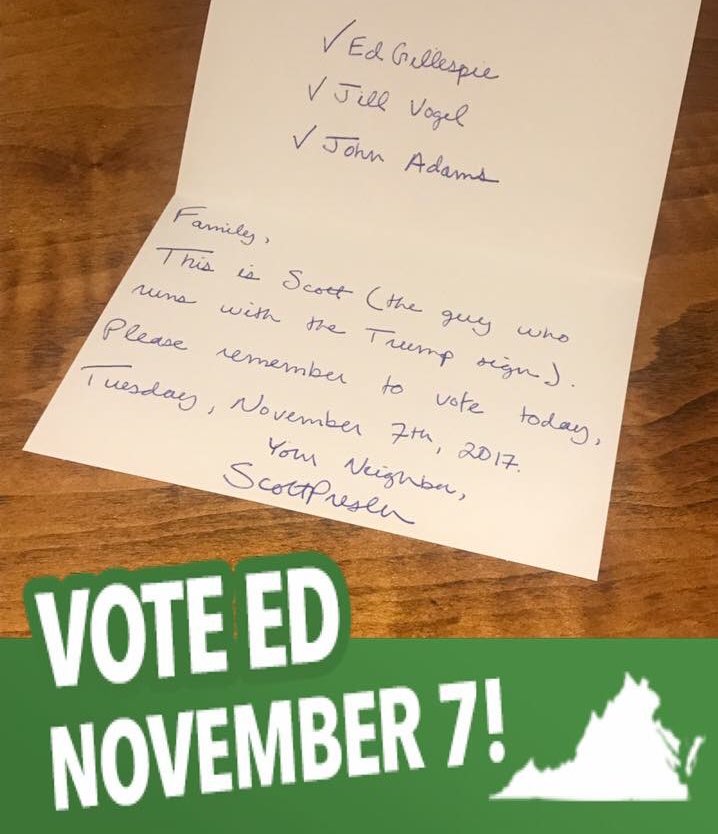 ✓ Ed Gillespie
✓ Jill Vogel
✓ John Adams
Family,
This is Scott (the guy who
runs with the Trump sign).
Please remember to vote today,
Tuesday, November 7th, 2017.
Your Neighbor,
Scott Presler
VOTE ED
NOVEMBER 7!